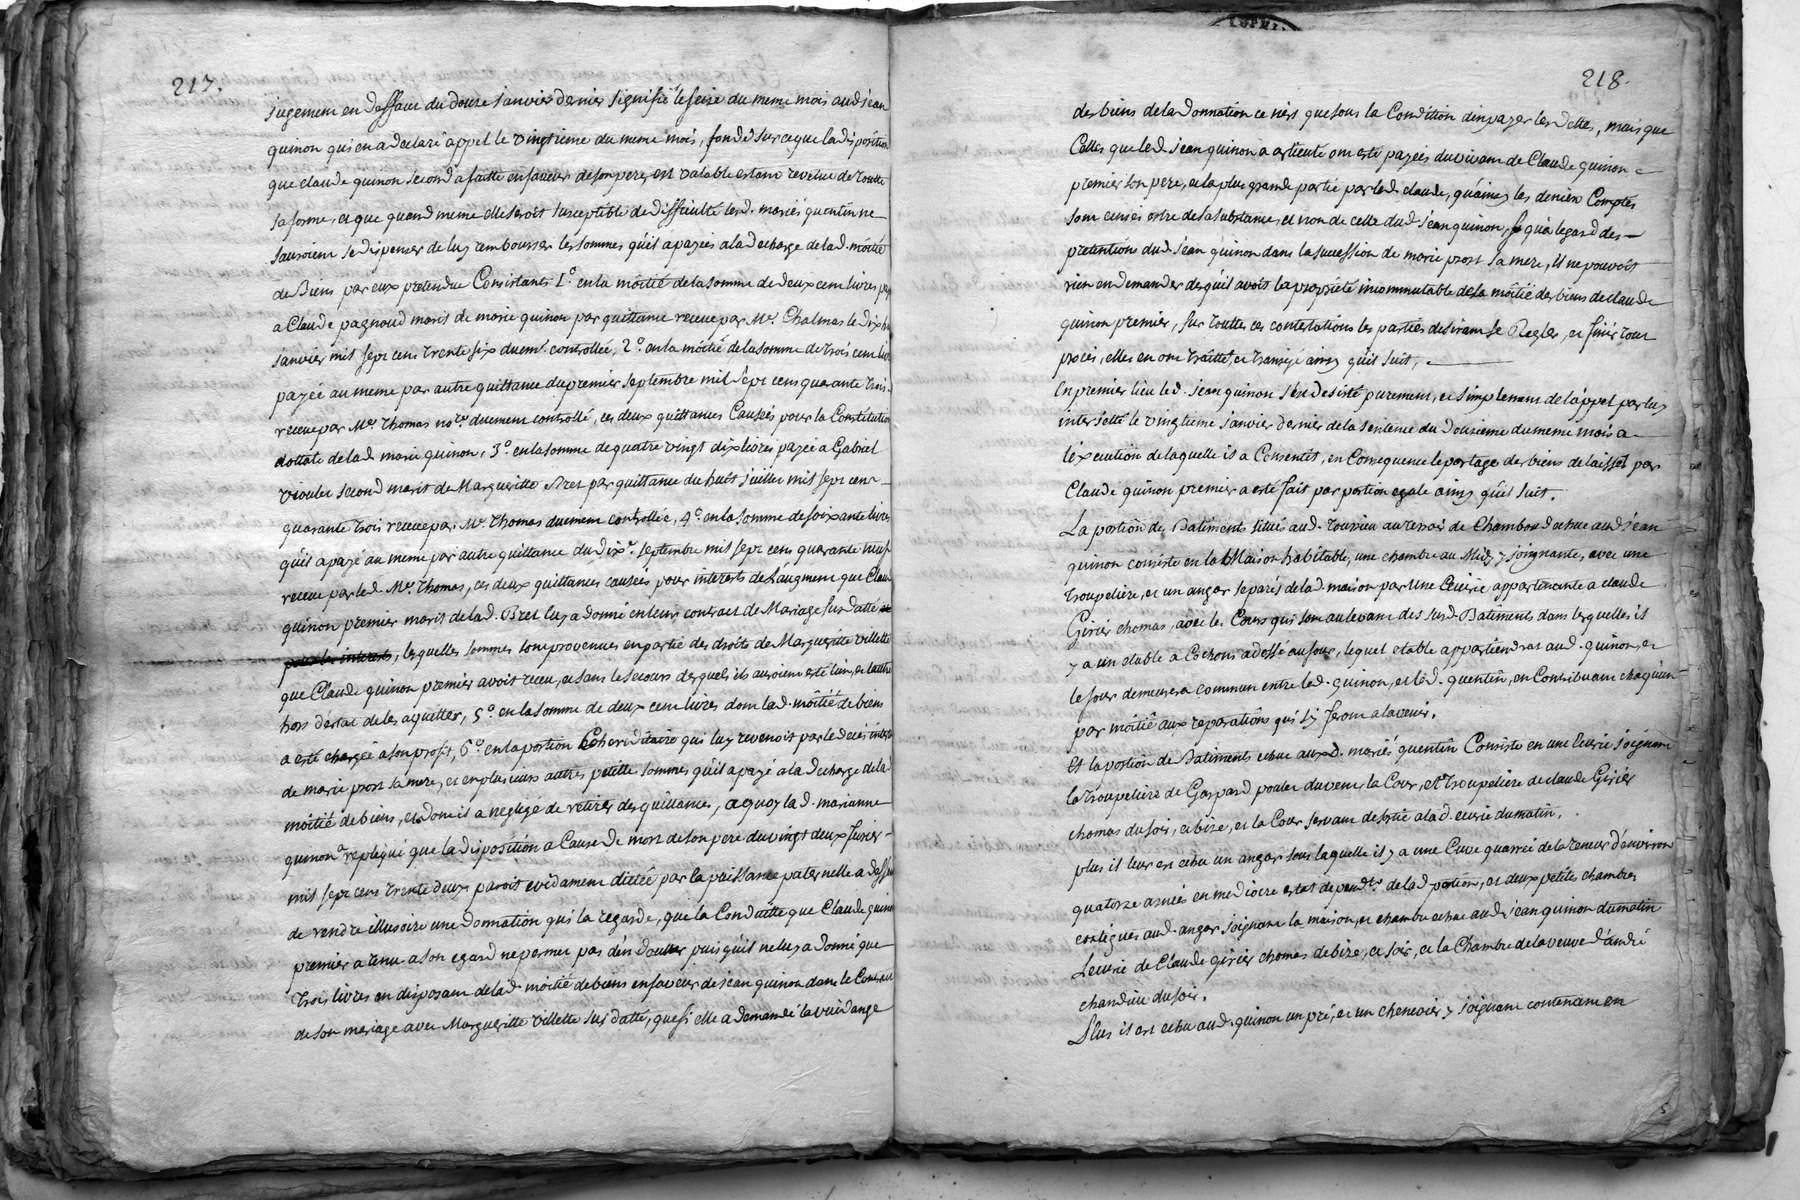 217.
jugement en deffaut du douze janvier dernier signifié le seize du meme mois aud. jean
quinon qui en a declaré appel le vingtieme du meme mois, fondé sur ce que la disposition
que claude quinon second a faitte en faveur de son pere, est valable estant revetue de toutte
sa forme, et que quand meme elle seroit susceptible de difficulté lesd. mariés quentin ne
sauroient se dispenser de luy rembourser les sommes qu'il a payées a la decharge de lad. môitié
de Biens par eux pretendue Consistantes 1.° en la môitié de la somme de deux cent livres
a Claude pagnoud marit de marie quinon par quittance receue par M.e Chalmas le dix
janvier mil sept cens trente six duem.t controllée, 2.° en la môitié de la somme de trois cent
payée au meme par autre quittance du premier septembre mil sept cens quarante trois
receue par M.e Thomas no.re duement controllé, ces deux quittances Causées pour la Constitution
dottale de lad. marie quinon, 3.° en la somme de quatre vingt dix livres payée a Gabriel
viouler second marit de Margueritte Bret par quittance du huit juillet mil sept cens
quarante trois receue par M.e Thomas duement controllée, 4.° en la somme de soixante livres
qu'il a payé au meme par autre quittance du dix.e septembre mil sept cens quarante neuf
receue par led. M.e Thomas, ces deux quittances causées pour interets de l'augment que Claude
quinon premier marit de lad. Bret luy a donné en leur contract de Mariage susdatté
pour les interets, lesquelles sommes sont provenues en partie des droits de Margueritte villette
que Claude quinon premier avoit receu, et sans le secours desquels ils auroient esté l'un, et l'autre
hors d'estat de les aquitter, 5.° en la somme de deux cent livres dont lad. môitié de biens
a esté chargée a son profit, 6.° en la portion Cohereditaire qui luy revenoit par le decés
de marie prost sa mere, et en plusieurs autres petitte sommes qu'il a payé a la decharge de lad.
môitié de biens, et dont il a negligé de retirer des quittances, a quoy lad. marianne
quinon a repliqué que la disposition a Cause de mort de son pere du vingt deux fevrier
mil sept cens trente deux paroit evidament dictée par la puissance paternelle a dessein
de rendre illusoire une donnation qui la regarde, que la Conduitte que Claude quinon
premier a tenu a son egard ne permet pas d'en douter puisqu'il ne luy a donné que
trois livres en disposant de lad. môitié de biens en faveur de jean quinon dans le Contract
de son mariage avec Margueritte villette susdatté, que si elle a demandé la vuidange
218.
des biens de la donnation ce n'est que sous la Condition d'en payer les dettes, mais que
Celles que led. jean quinon a articulé ont esté payées du vivant de Claude quinon
premier son pere, et la plus grande partie par led. claude, qu'ainsy les deniers Comptés
sont censés estre de sa substance, et non de celle dud. jean quinon, qu'a l'egard des
pretentions dud. jean quinon dans la succession de marie prost sa mere, il ne pouvoit
rien en demander des qu'il avoit la proprieté incommutable de la môitié des biens de claude
quinon premier, sur touttes ces contestations les parties desirant se Regler, et finir tout
procés, elles en ont traitté, et transigé ainsy qu'il suit,
En premier lieu led. jean quinon s'est desisté purement, et simplement de l'appel par luy
interjetté le vingtieme janvier dernier de la sentence du douzieme du meme mois a
l'execution de laquelle il a Consentit, en Consequence le partage des biens delaissés par
Claude quinon premier a esté fait par portion egale ainsy qu'il suit.
La portion de Batiments situé aud. touvieu au terroir de Chambon echue aud. jean
quinon consiste en la Maison habitable, une chambre au Midy y joignante, avec une
troupeliere, et un angar separés de lad. maison par une Ecurie appartenante a claude
Girier thomas, avec les Cours qui sont au levant des susd. Batiments dans lesquelles il
y a un etable a Cochons adossé au four, lequel etable appartiendrat aud. quinon, et
le four demeurera commun entre led. quinon, et led. quentin, en Contribuant chaqu'un
par môitié aux reparations qui s'y feront a l'avenir.
Et la portion de Batiments echue auxd. mariés quentin Consiste en une ecurie joignant
la troupeliere de Gaspard poulet du vent, la Cour, et troupeliere de claude Girier
thomas du soir, et bize, et la Cour servant de sortie a lad. ecurie du matin.
plus il leur est echu un angar sous laquelle il y a une Cuve quarrée de la teneur d'environ
quatorze asnées en mediocre estat dependt.e de lad. portion, et deux petite chambres
contigues aud. angar joignant la maison, et chambre echue aud. jean quinon du matin
L'ecurie de Claude girier thomas de bize, et soir, et la Chambre de la veuve d'andré
chandieu du soir.
Plus il est echu aud. quinon un pré, et un chenevier y joignant contenant en